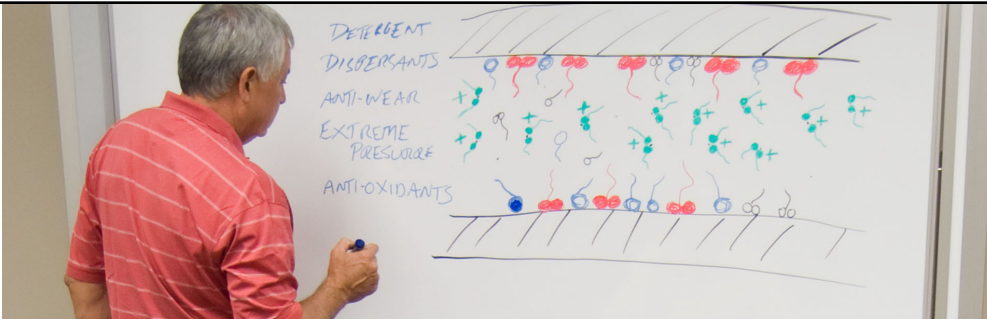 DETERGENT
DISPERSANTS
ANTI-WEAR
EXTREME
PRESSURE
ANTI-OXIDANTS